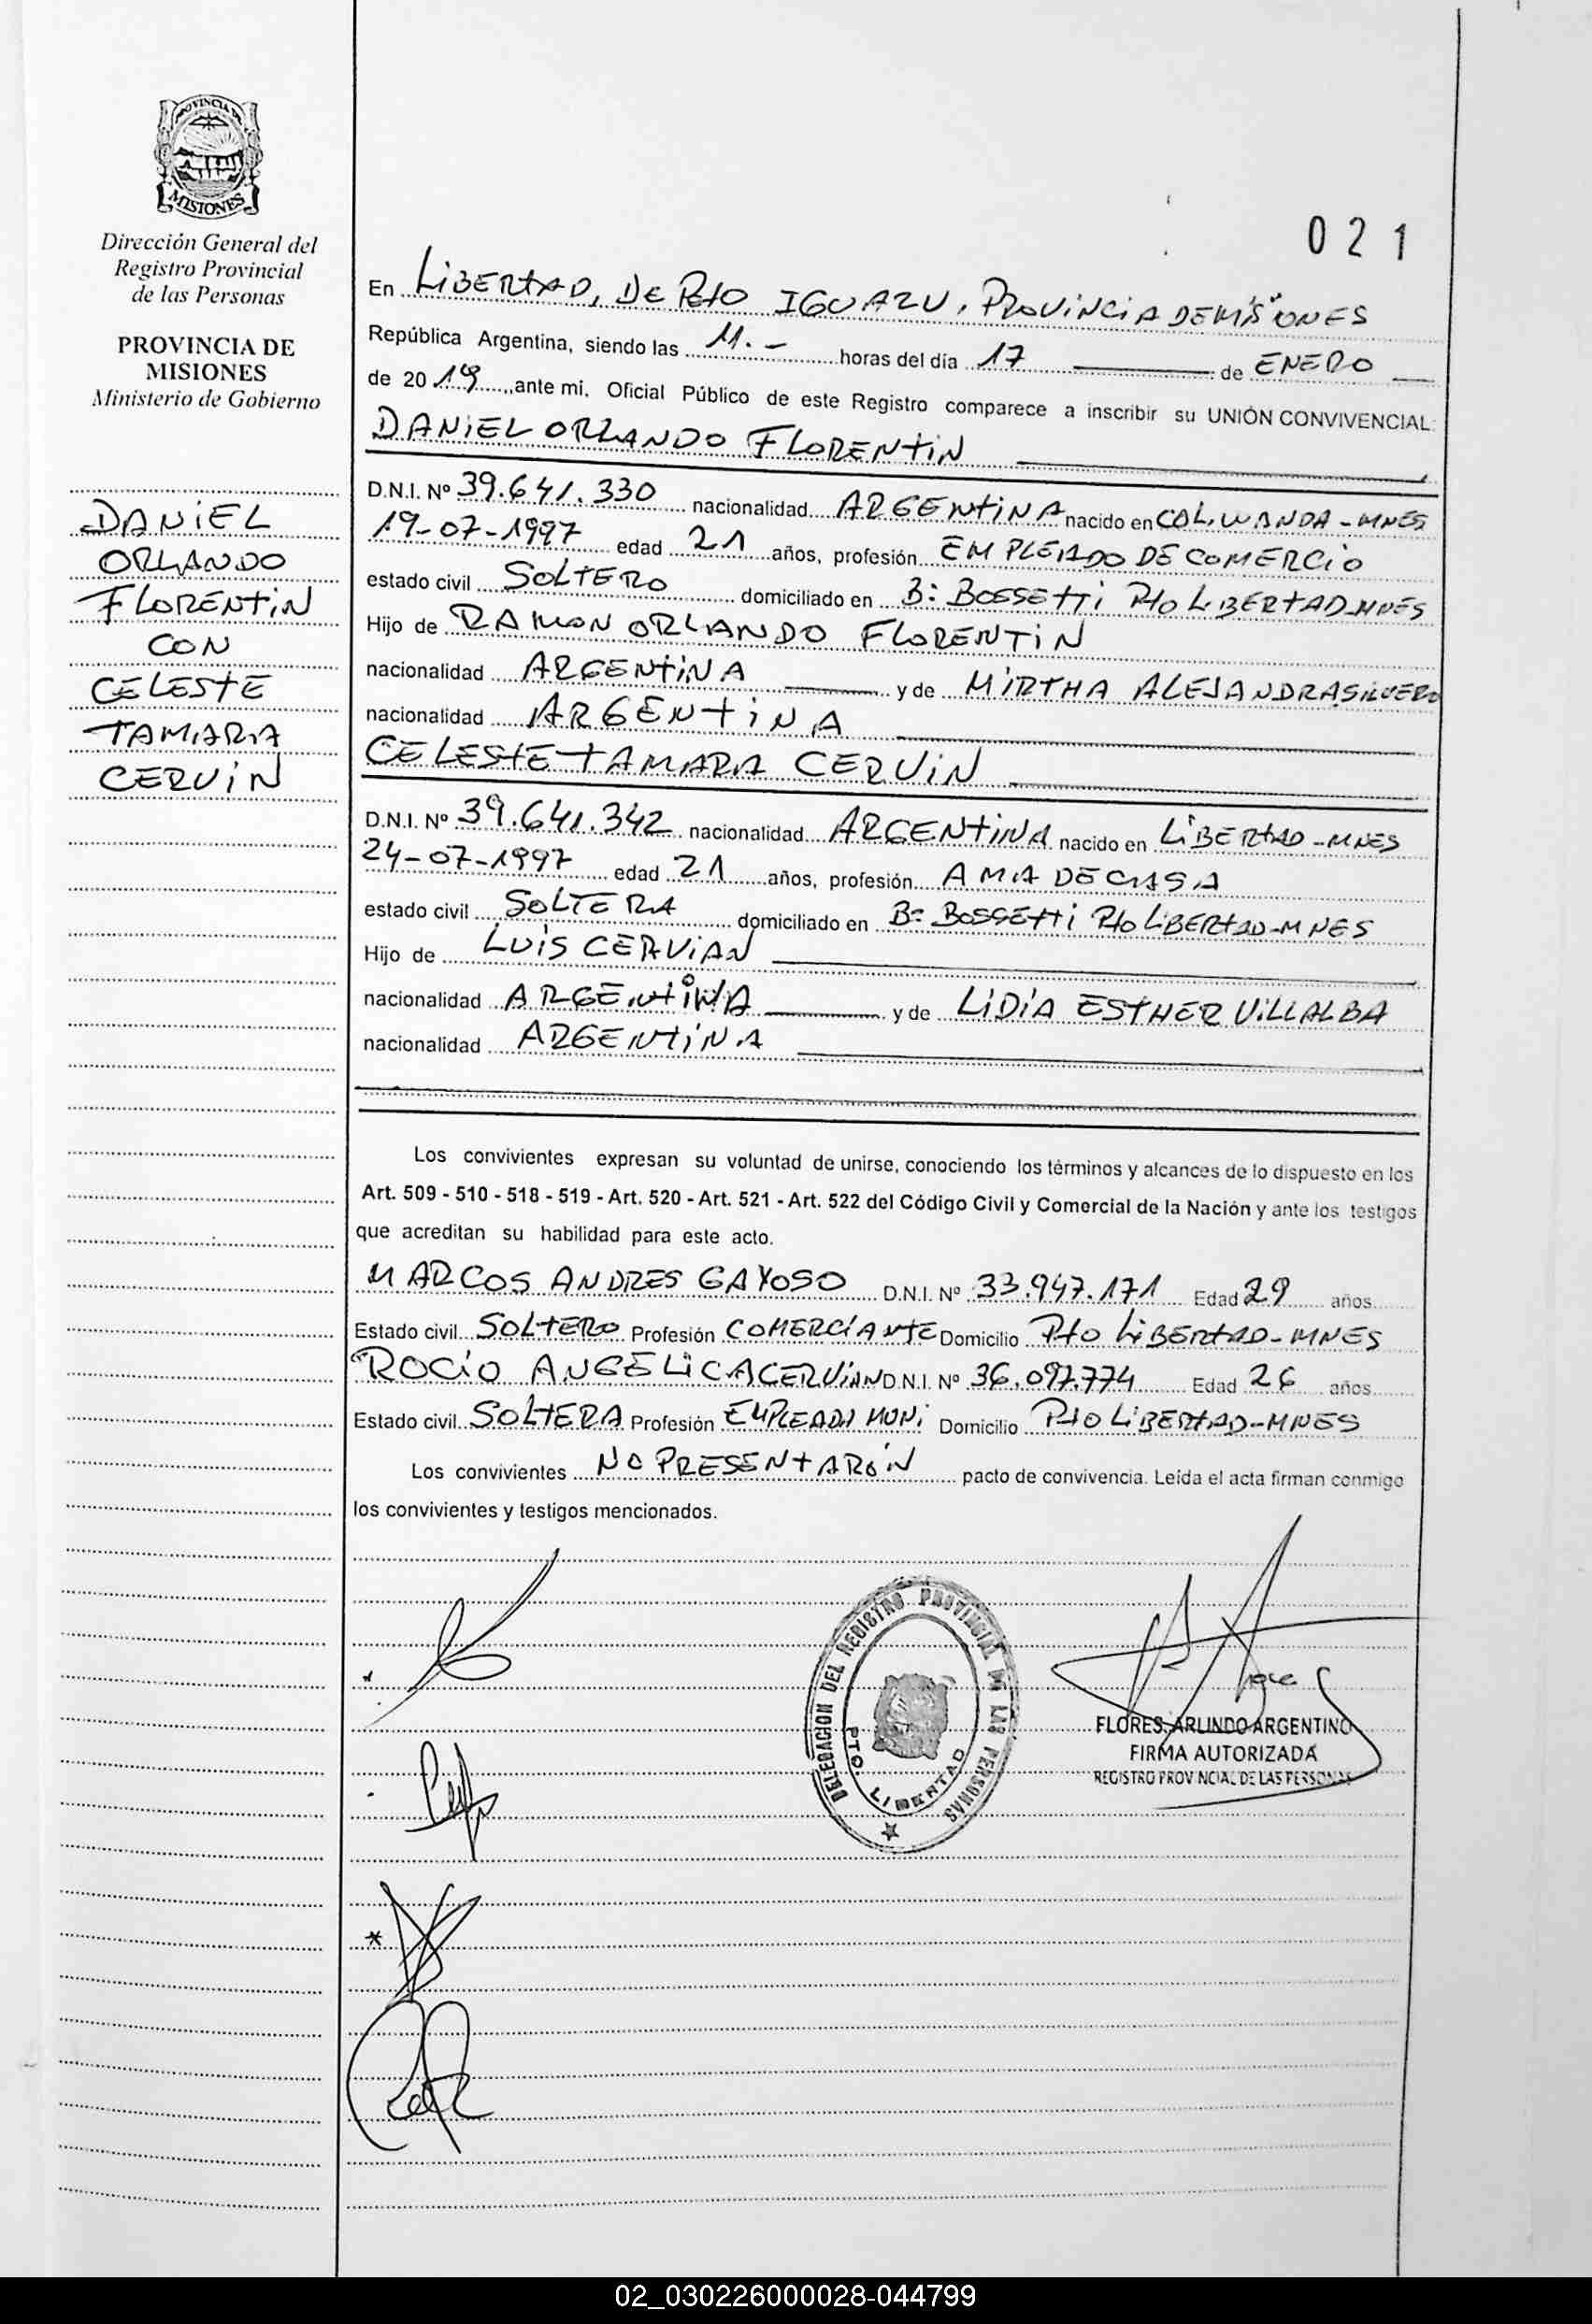 PROVINCIA DE
MISIONES
Dirección General del
Registro Provincial
de las Personas
PROVINCIA DE
MISIONES
Ministerio de Gobierno
DANIEL
ORLANDO
FLORENTIN
CON
CELESTE
TAMARA
CERVIN
021
En LIBERTAD, DPTO IGUAZU, PROVINCIA DE MISIONES
República Argentina, siendo las 11.- horas del día 17 de ENERO
de 2019, ante mi, Oficial Público de este Registro comparece a inscribir su UNIÓN CONVIVENCIAL:
DANIEL ORLANDO FLORENTIN
D.N.I. Nº 39.641.330 nacionalidad ARGENTINA nacido en COL. WANDA - MNES
19-07-1997 edad 21 años, profesión EMPLEADO DE COMERCIO
estado civil SOLTERO domiciliado en Bº BOSSETTI PTO LIBERTAD-MNES
Hijo de RAMON ORLANDO FLORENTIN
nacionalidad ARGENTINA y de MIRTHA ALEJANDRA SILVERO
nacionalidad ARGENTINA
CELESTE TAMARA CERVIN
D.N.I. Nº 39.641.342 nacionalidad ARGENTINA nacido en LIBERTAD -MNES
24-07-1997 edad 21 años, profesión AMA DE CASA
estado civil SOLTERA domiciliado en Bº BOSSETTI PTO LIBERTAD-MNES
Hijo de LUIS CERVIAN
nacionalidad ARGENTINA y de LIDIA ESTHER VILLALBA
nacionalidad ARGENTINA
Los convivientes expresan su voluntad de unirse, conociendo los términos y alcances de lo dispuesto en los
Art. 509 - 510 - 518 - 519 - Art. 520 - Art. 521 - Art. 522 del Código Civil y Comercial de la Nación y ante los testigos
que acreditan su habilidad para este acto.
MARCOS ANDRES GAYOSO D.N.I. Nº 33.947.171 Edad 29 años
Estado civil SOLTERO Profesión COMERCIANTE Domicilio PTO LIBERTAD-MNES
ROCIO ANGELICA CERVIAN D.N.I. Nº 36.097.774 Edad 26 años
Estado civil SOLTERA Profesión EMPLEADA MUNI Domicilio PTO LIBERTAD-MNES
Los convivientes NO PRESENTARON pacto de convivencia. Leída el acta firman conmigo
los convivientes y testigos mencionados.
DELEGACION DEL REGISTRO PROVINCIAL DE LAS PERSONAS
PTO. LIBERTAD
FLORES, ARLINDO ARGENTINO
FIRMA AUTORIZADA
REGISTRO PROVINCIAL DE LAS PERSONAS
02_030226000028-044799